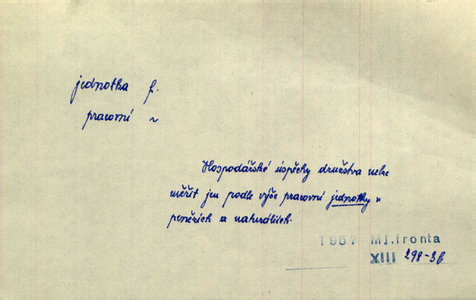 jednotka f.
pracovní ~
Hospodářské úspěchy družstva nelze
měřit jen podle výše pracovní jednotky v
penězích a naturáliích.
1957 Ml. fronta
XIII 298-3b